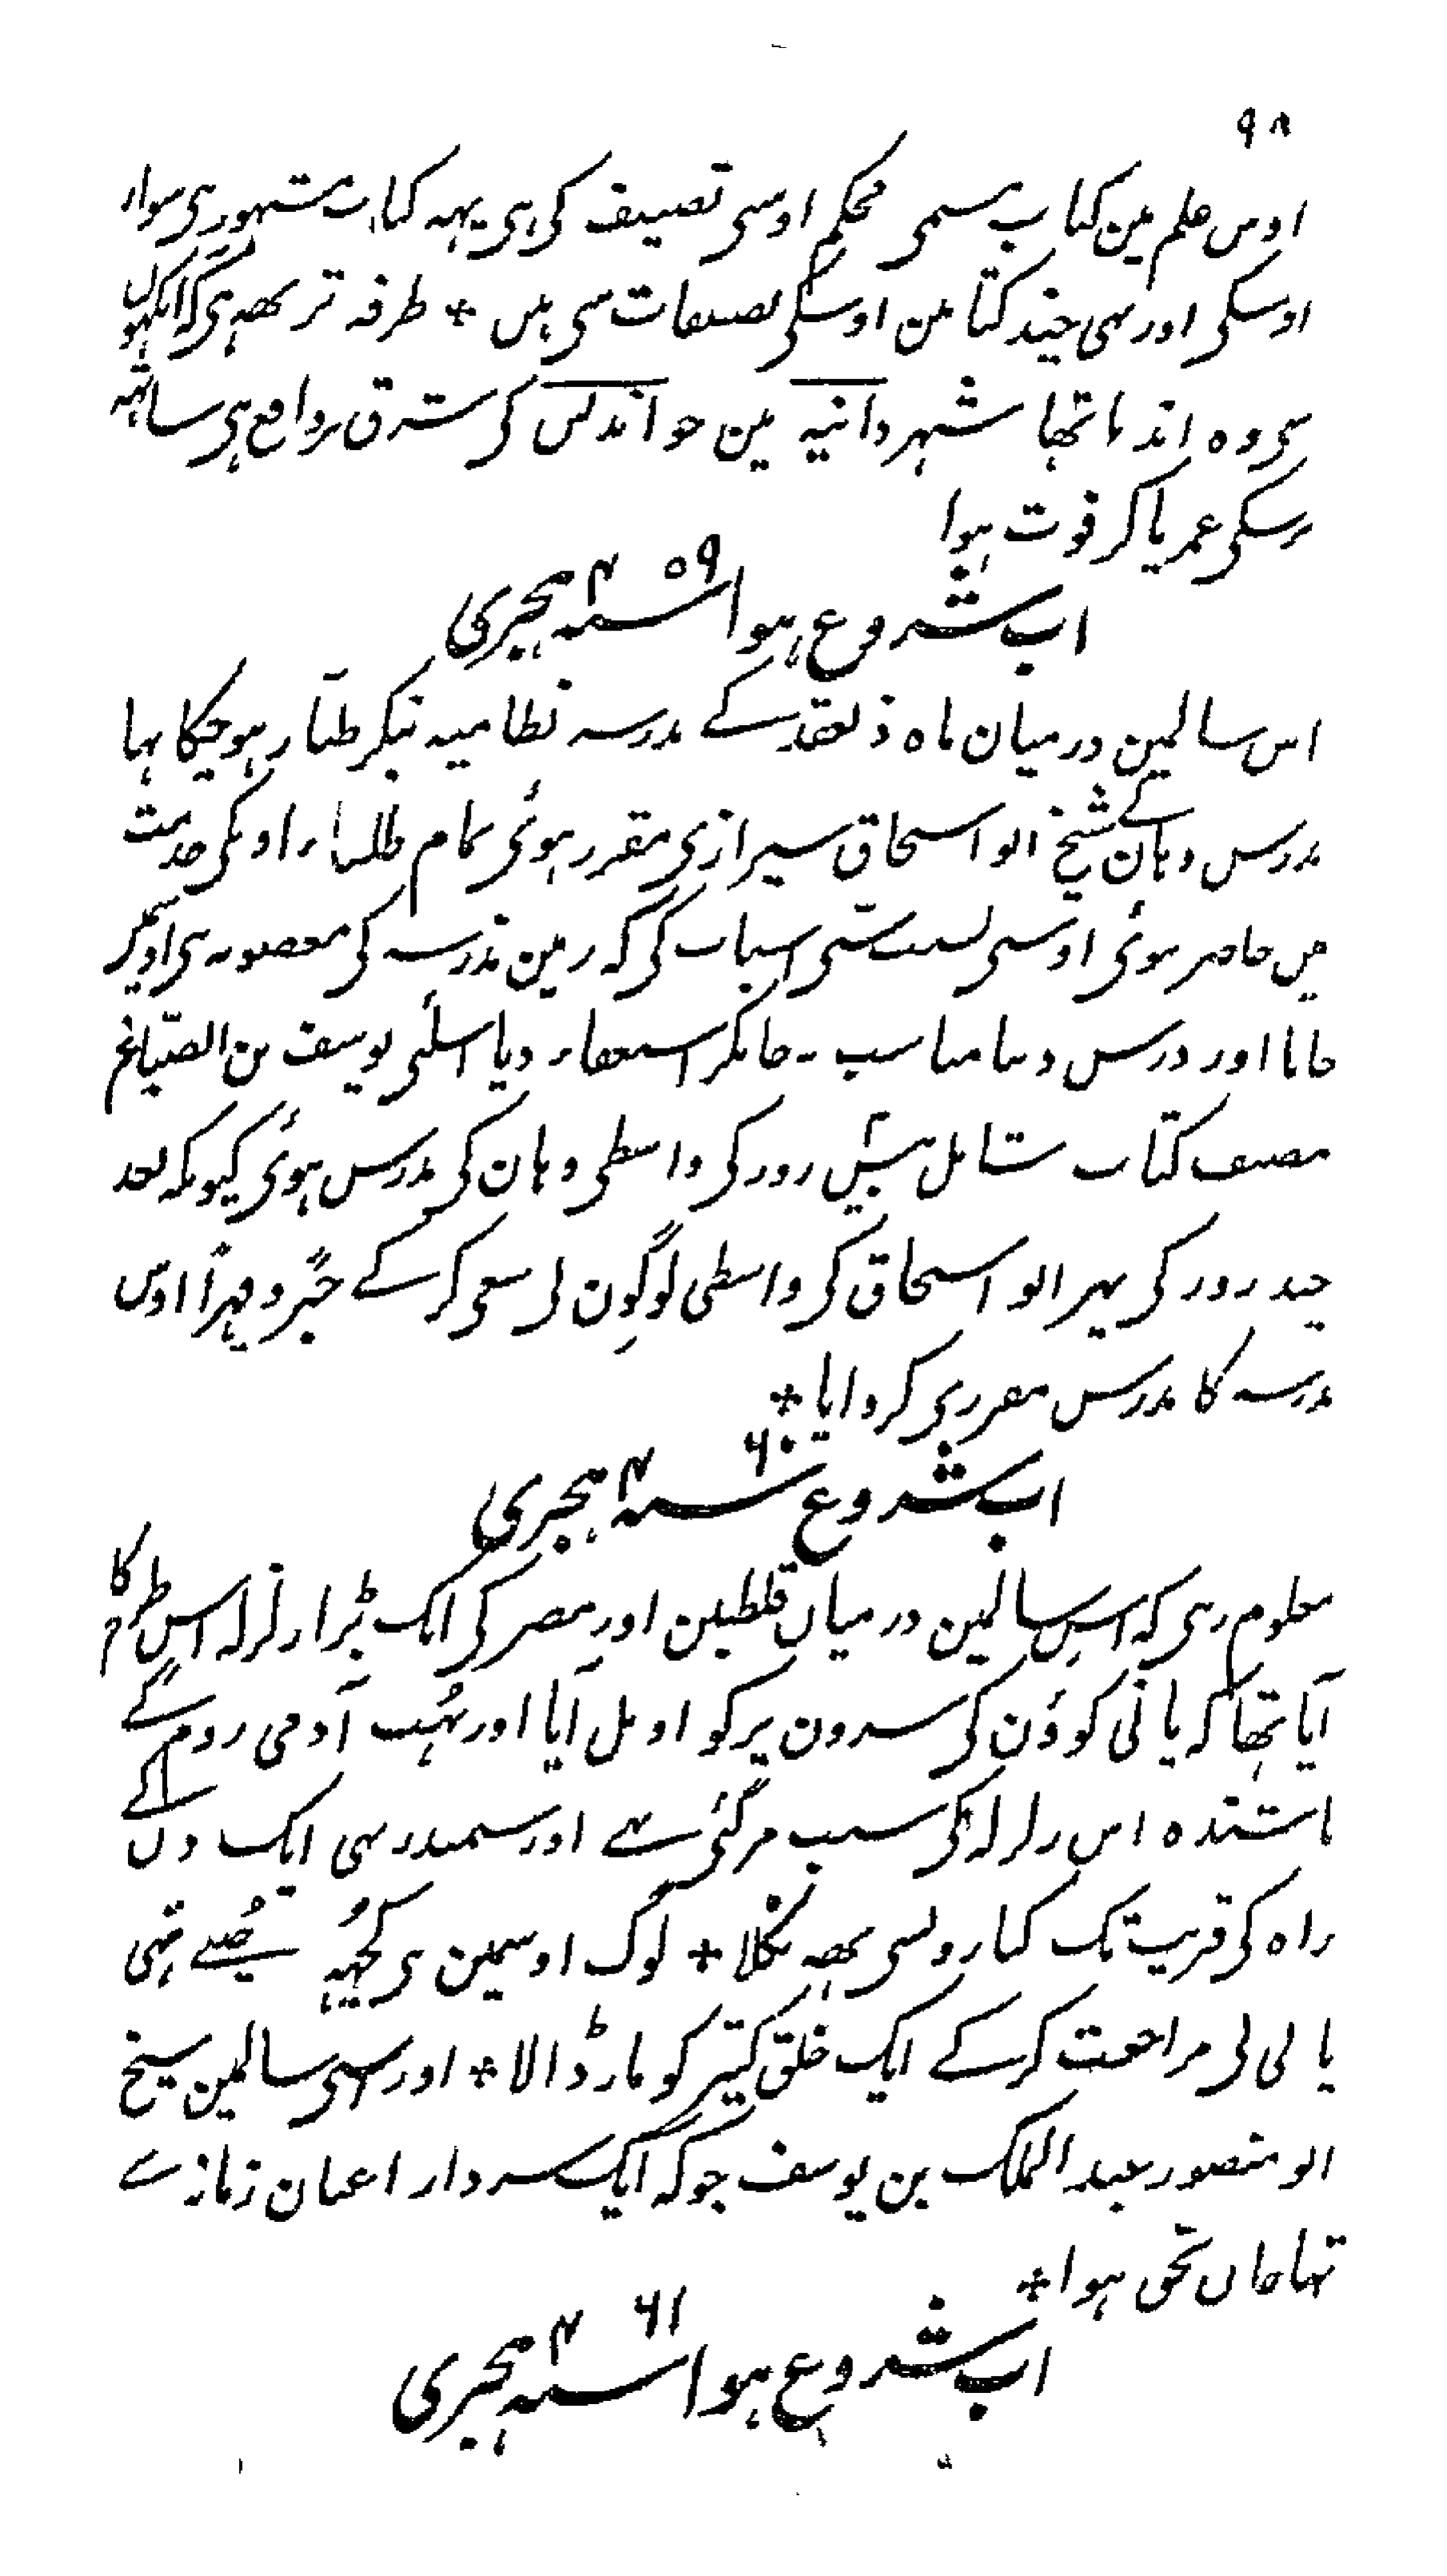 ۹۸
اوس علم مین کتاب مسمی محکم اوسی تصنیف کی ہی یہہ کتاب مشہور ہی سوای
اوسکی اور بہی چند کتابین اوسکی تصنیفات سی ہین * طرفہ تر یہہ ہی کہ انکہون
سی وہ اندہا تھا شہر دانیہ مین جو اندلس کی شرق پر واقع ہی ساٹہہ
برسکی عمر پاکر فوت ہوا
اب شروع ہوا سنہ ۴۵۹ ہجری
اس سالمین درمیان ماہ ذلقعد کے مدرسہ نظامیہ بنکر طیار ہو چکا تہا
مدرس وہان کے شیخ ابو اسحاق شیرازی مقرر ہوئی تمام طلباء اونکی خدمت
مین حاضر ہوئی اوسی بسبب اسبات کی کہ زمین مدرسہ کی مغصوبہ ہی اوسجگہ
جانا اور درس دینا مناسب نجانکر استعفاء دیا اسلئی یوسف بن الصباغ
مصنف کتاب شامل بیس روز کی واسطی وہان کی مدرس ہوئی کیونکہ بعد
چند روز کی پہر ابو اسحاق کی واسطی لوگون نی سعی کرکے جبرا و قہرا اوس
مدرسہ کا مدرس مقرر ہی کروایا *
اب شروع سنہ ۴۶۰ ہجری
معلوم رہی کہ اس سالمین درمیان فلطین اور مصر کی ایک بڑا زلزلہ اس طرح کا
آیا تھا کہ پانی کوؤن کی سرون پر کو اوبل آیا اور بہت آدمی روم کے
باشندہ اس زلزلہ کی سبب مرگئی تہے اور سمندر بہی ایک دن کے
راہ کی قریب تک کنارونسی بھہ نکلا * لوگ اوسمین سی کچہہ تہی
پانی نی مراجعت کرکے ایک خلق کثیر کو مار ڈالا * اور اسی سالمین شیخ
ابو منصور عبد الملک بن یوسف جو کہ ایک سردار اعیان زمانہ سے
تہا جان بحق ہوا *
اب شروع ہوا سنہ ۴۶۱ ہجری